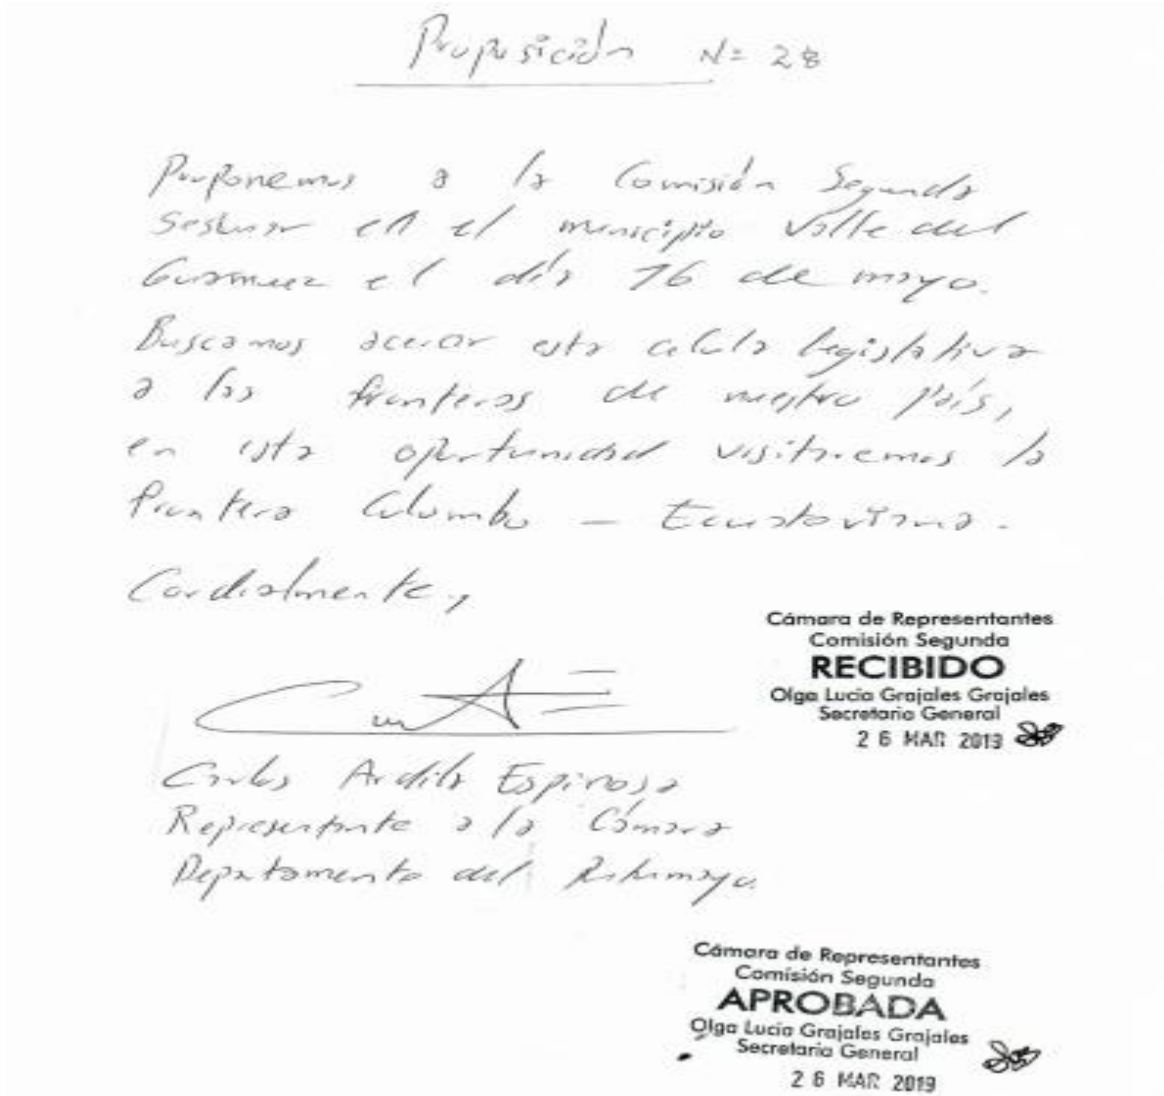 Proposición N= 28
Proponemos a la Comisión Segunda
Sesionar en el municipio Valle del
Guamuez el día 16 de mayo.
Buscamos acercar esta celula legislativa
a las fronteras de nuestro País,
en esta oportunidad visitaremos la
frontera Colombo - Ecuatoriana.
Cordialmente,
Carlos Ardila Espinosa
Representante a la Cámara
Departamento del Putumayo.
Cámara de Representantes
Comisión Segunda
RECIBIDO
Olga Lucia Grajales Grajales
Secretaria General
26 MAR 2019
Cámara de Representantes
Comisión Segunda
APROBADA
Olga Lucia Grajales Grajales
Secretaria General
26 MAR 2019